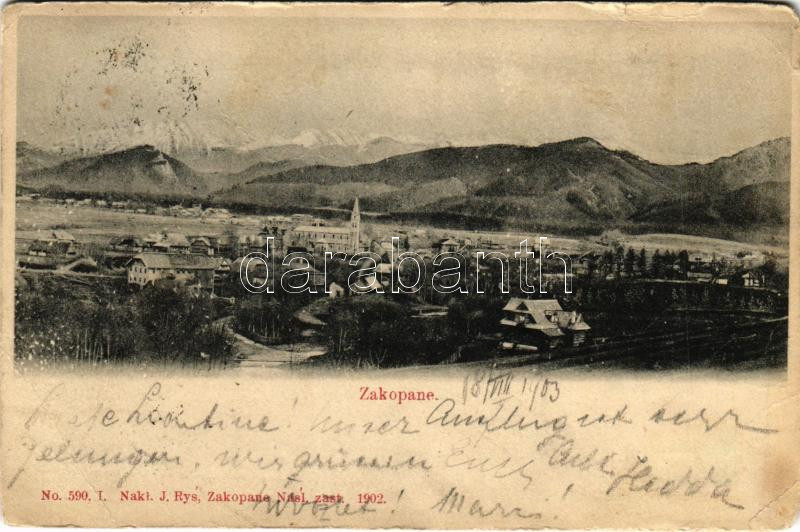 darabanth
Zakopane. 18/VIII 1903
Leontine! Unser Ausflug ist sehr
gelungen, wir grüssen Euch Hedda
No. 590. I. Nakł. J. Rys, Zakopane Naśl. zast. 1902.